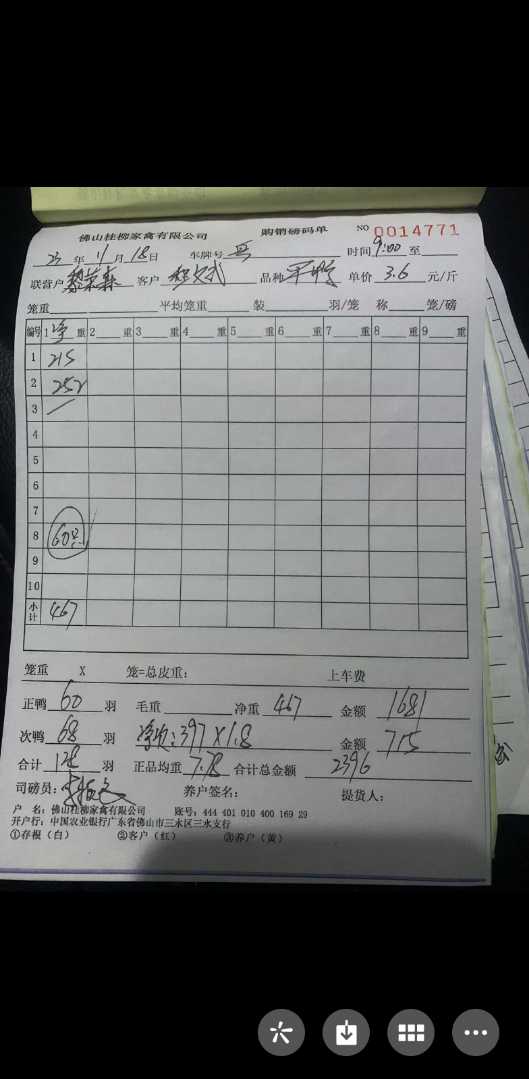 佛山桂柳家禽有限公司 购销磅码单 NO 0014771
23 年 11 月 18 日 车牌号 时间 9:00 至
联营户 客户 品种 单价 3.6 元/斤
笼重 平均笼重 装 羽/笼 称 笼/磅
编号 1 净 重 2 重 3 重 4 重 5 重 6 重 7 重 8 重 9 重
1 215
2 252
3
4
5
6
7
8 60只
9
10
小计 467
笼重 X 笼=总皮重: 上车费
正鸭 60 羽 毛重 净重 467 金额 1681
次鸭 68 羽 净次:397X1.8 金额 715
合计 128 羽 正品均重 7.78 合计总金额 2396
司磅员: 养户签名: 提货人:
户 名: 佛山桂柳家禽有限公司 账号: 444 401 010 400 169 29
开户行: 中国农业银行广东省佛山市三水区三水支行
①存根(白) ②客户(红) ③养户(黄)